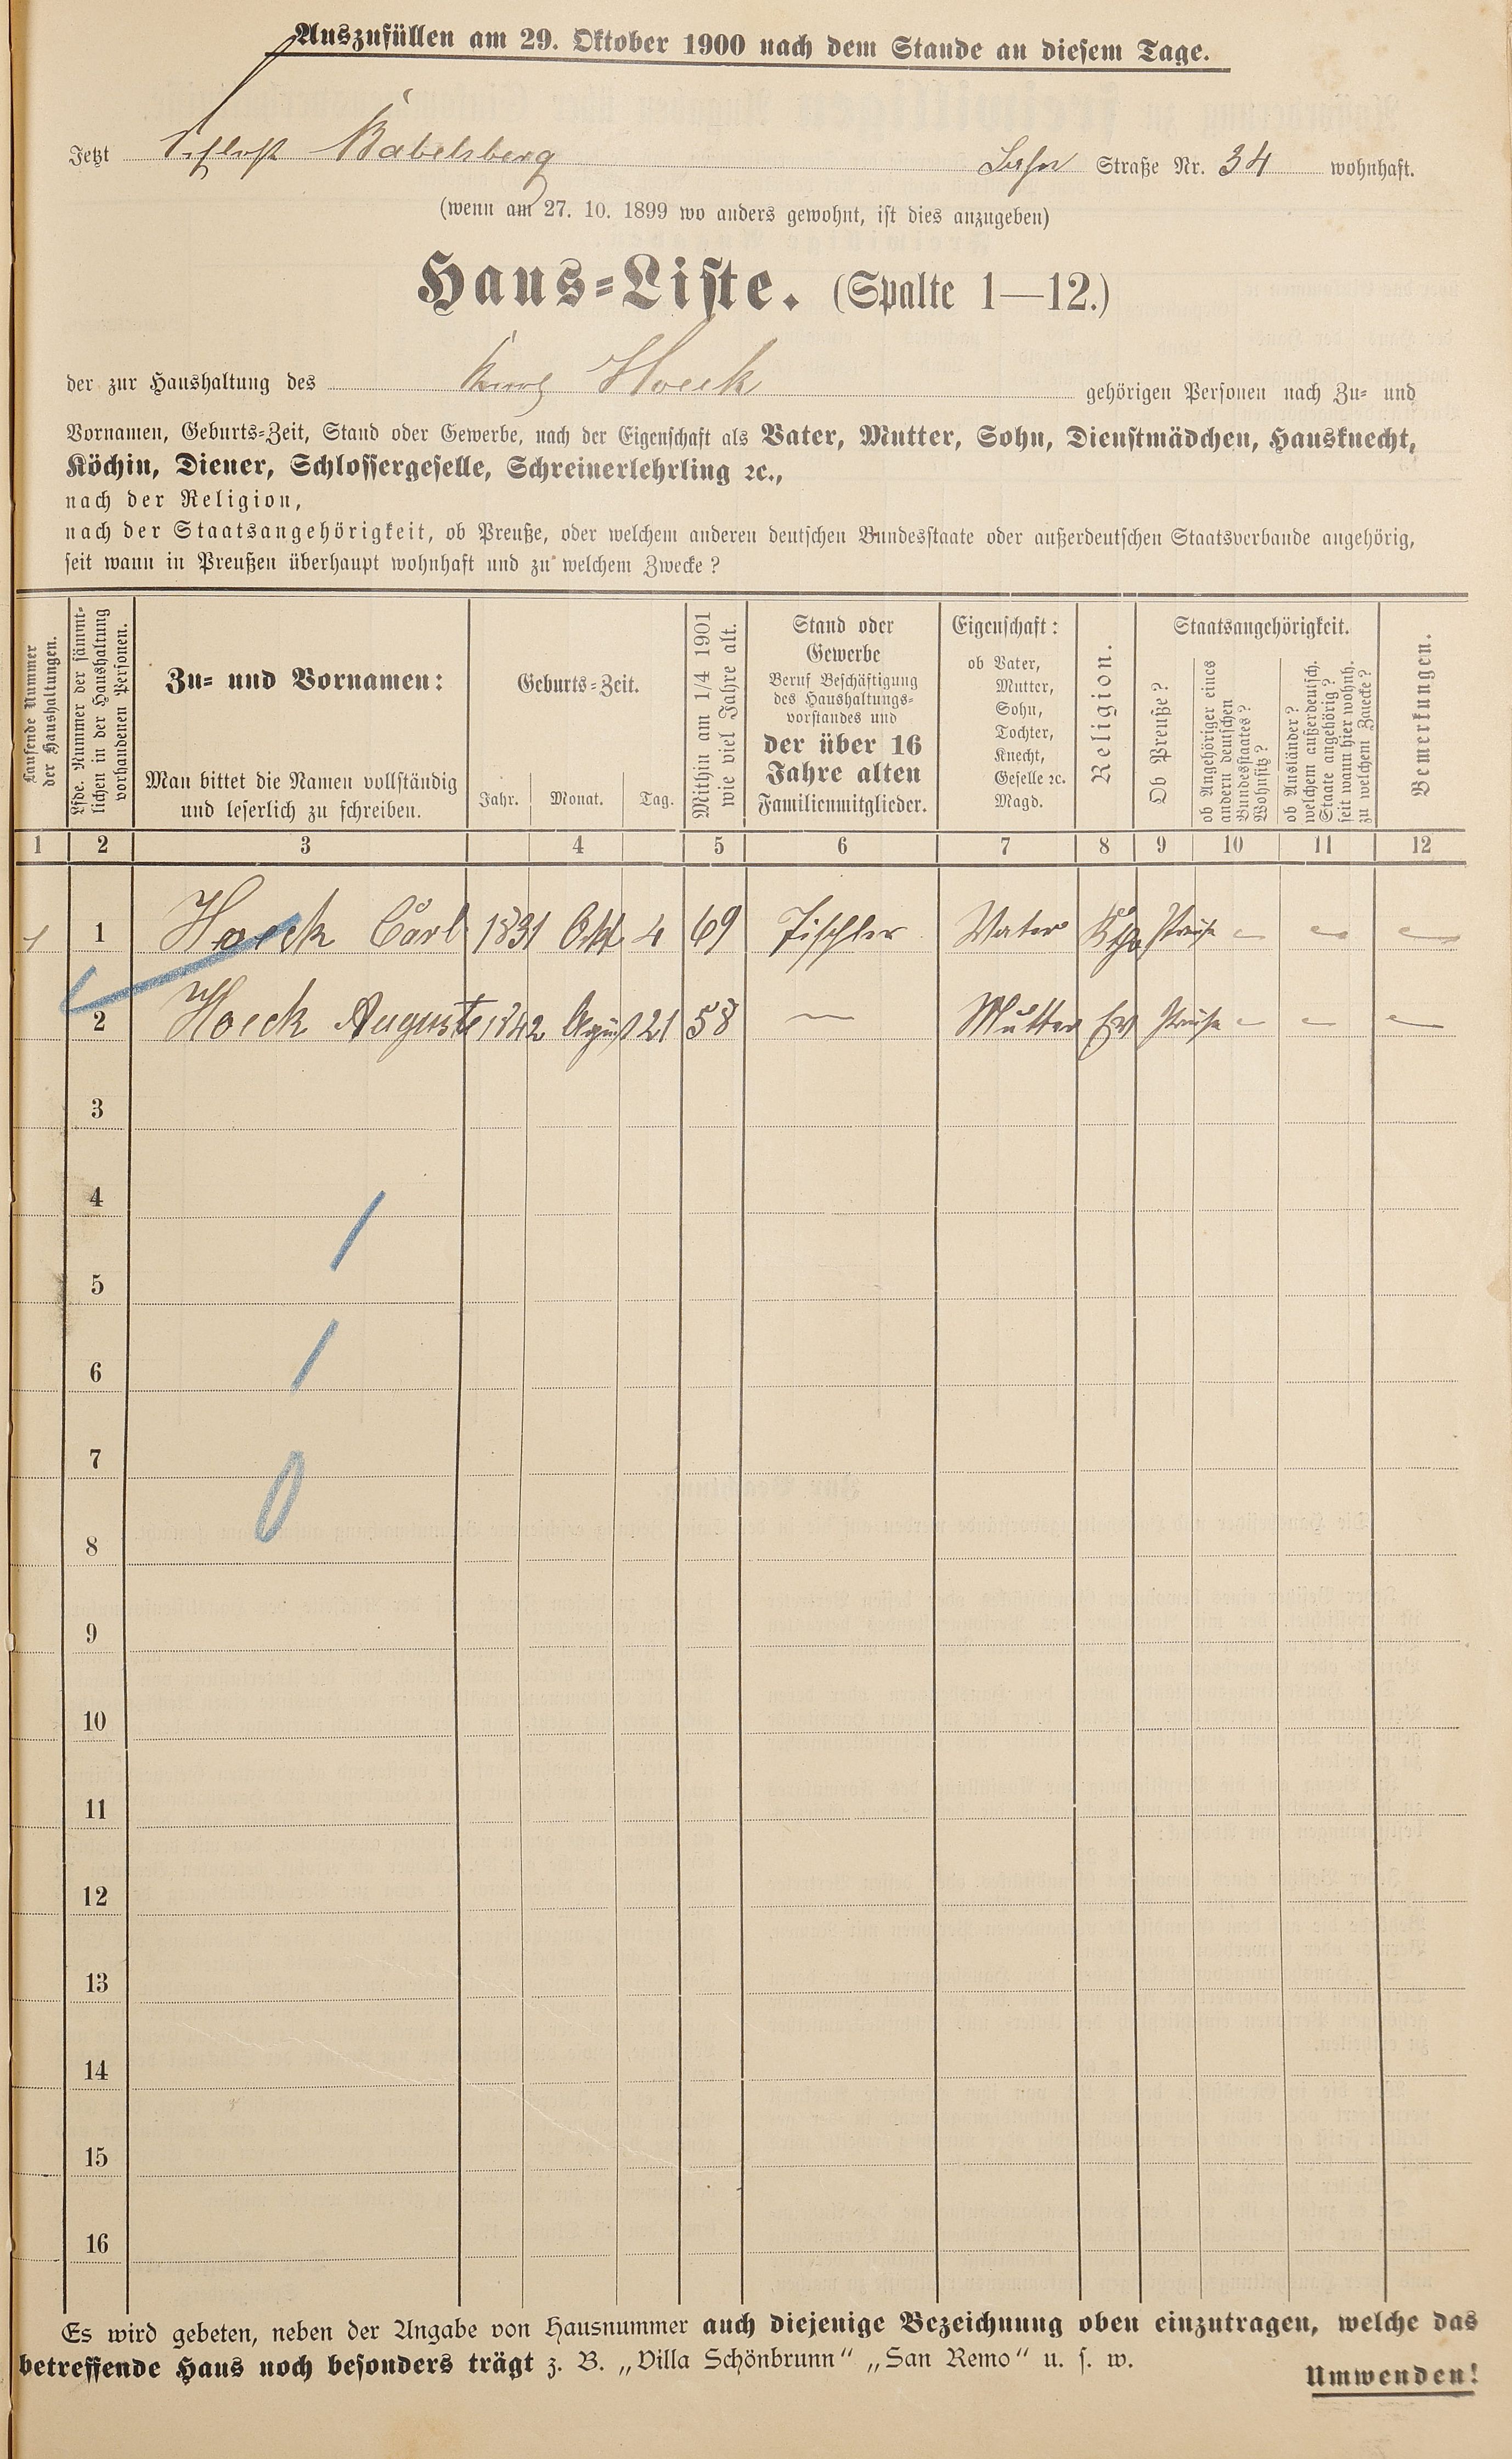 Auszufüllen am 29. Oktober 1900 nach dem Stande an diesem Tage.
Jetzt Schloß Babelsberg Straße Nr. 34 wohnhaft.
(wenn am 27. 10. 1899 wo anders gewohnt, ist dies anzugeben)
Haus-Liste. (Spalte 1—12.)
der zur Haushaltung des Hoeck gehörigen Personen nach Zu- und
Vornamen, Geburts-Zeit, Stand oder Gewerbe, nach der Eigenschaft als Vater, Mutter, Sohn, Dienstmädchen, Hausknecht,
Köchin, Diener, Schlossergeselle, Schreinerlehrling ꝛc.,
nach der Religion,
nach der Staatsangehörigkeit, ob Preuße, oder welchem anderen deutschen Bundesstaate oder außerdeutschen Staatsverbande angehörig,
seit wann in Preußen überhaupt wohnhaft und zu welchem Zwecke?
Laufende Nummer
der Haushaltungen.
Lfde. Nummer der sämmt-
lichen in der Haushaltung
vorhandenen Personen.
Zu- und Vornamen:
Man bittet die Namen vollständig
und leserlich zu schreiben.
Geburts-Zeit.
Jahr. Monat. Tag.
Mithin am 1/4 1901
wie viel Jahre alt.
Stand oder
Gewerbe
Beruf Beschäftigung
des Haushaltungs-
vorstandes und
der über 16
Jahre alten
Familienmitglieder.
Eigenschaft:
ob Vater,
Mutter,
Sohn,
Tochter,
Knecht,
Geselle ꝛc.
Magd.
Religion.
Staatsangehörigkeit.
Ob Preuße?
ob Angehöriger eines
andern deutschen
Bundesstaates?
Wohnsitz?
ob Ausländer?
welchem außerdeutsch.
Staate angehörig?
seit wann hier wohnh.
zu welchem Zwecke?
Bemerkungen.
1 2 3 4 5 6 7 8 9 10 11 12
1 1 Hoeck Carl 1831 Okt 4 69 Tischler Vater Kth Preuße – – –
2 Hoeck Auguste 1842 August 21 58 – Mutter Ev Preuße – – –
3
4
5
6
7
8
9
10
11
12
13
14
15
16
Es wird gebeten, neben der Angabe von Hausnummer auch diejenige Bezeichnung oben einzutragen, welche das
betreffende Haus noch besonders trägt z. B. „Villa Schönbrunn“ „San Remo“ u. s. w.
Umwenden!